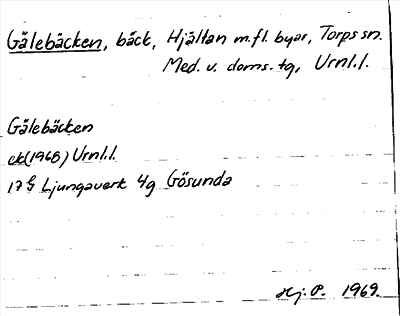 Gålebäcken, bäck, Hjältan m.fl. byar, Torps sn.
Med. v. doms. tg, Urnl.l.
Gålebäcken
ek(1968) Urnl.l.
17 G Ljungaverk 4g Gösunda
Hj. P. 1969.